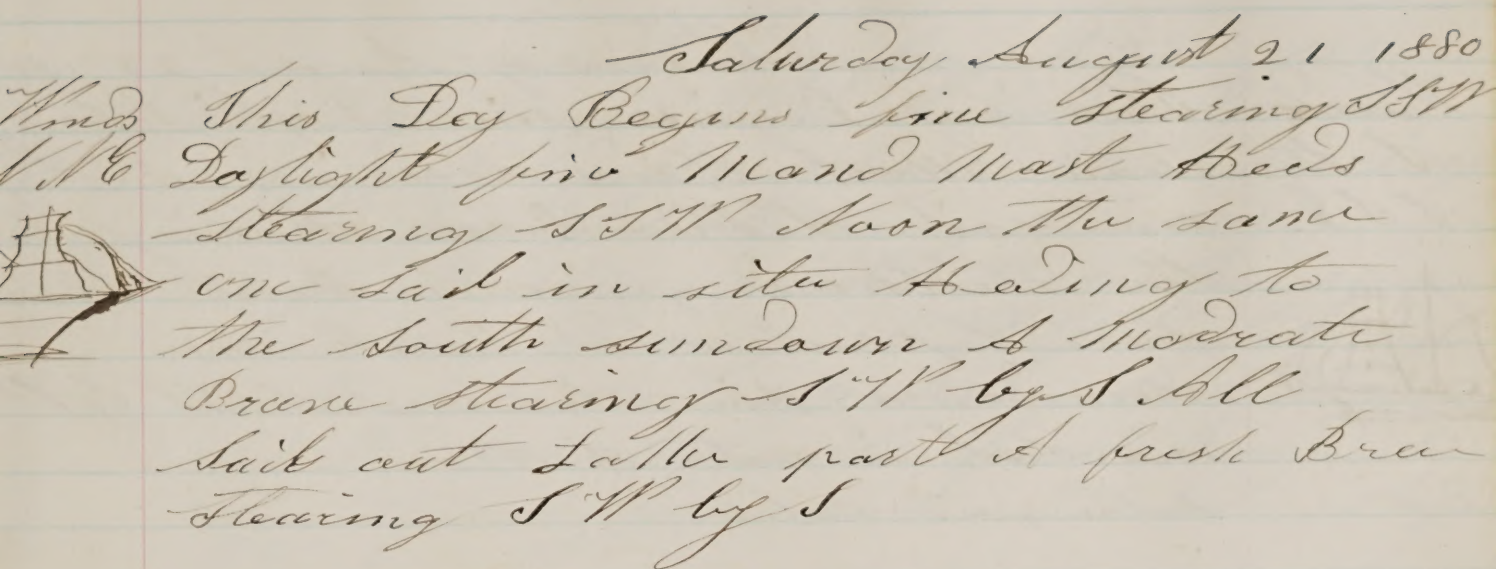 Saturday August 21 1880
Winds This Day Begins fine stearing SSW
NNE Daylight fine Mand Mast Heds
stearing SSW Noon the same
one sail in site Heding to
the south sundown A Modrate
Breese stearing SW by S All
Sails out Latter part A fresh Breese
stearing SW by S